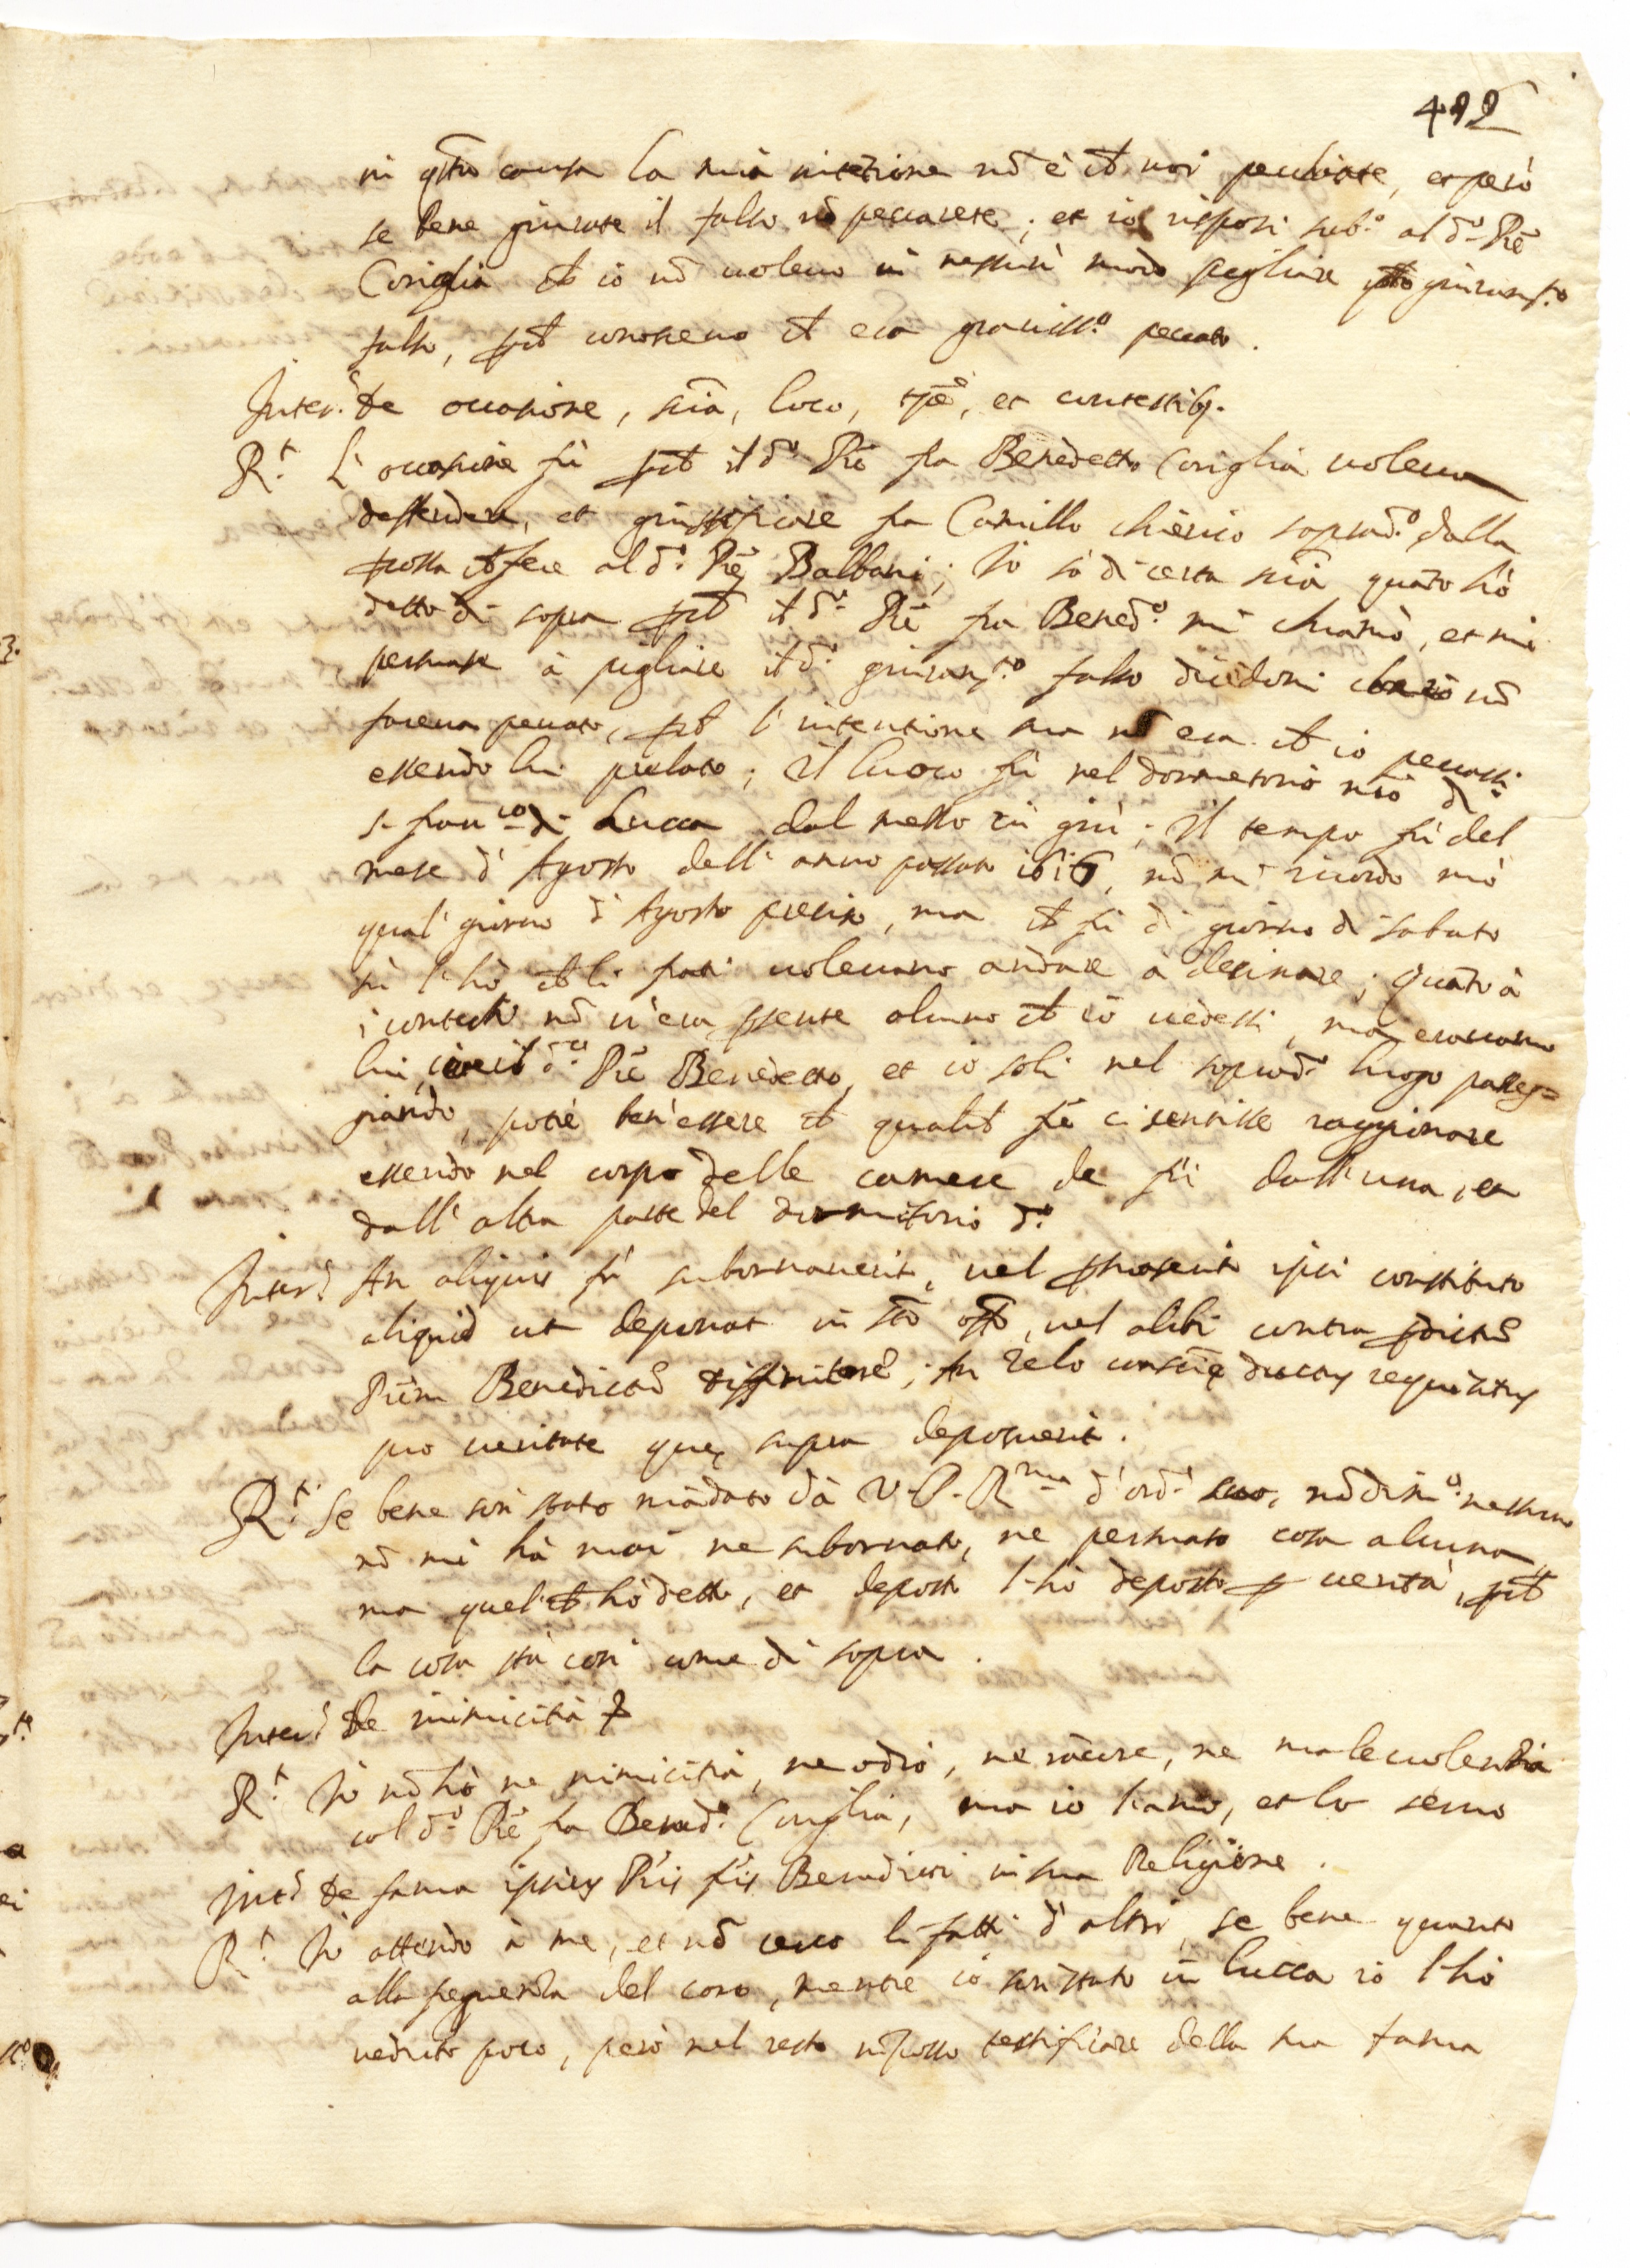 492
in q̃sta causa la mia intẽtione nõ è ch̃ voi pecchiate, et però
se bene giurate il falso nõ peccarete; et io risposi sub.º al d.º Prẽ
Coriglia ch̃ io nõ volevo in nessun modo pigliare giuram.to
falso, perch̃ conoscevo ch̃ era graviss.º peccato.
Inter. de occasione, sciã, loco, tp̃e, et contestib.
R.t L'occasione fù perch̃ il d.º Prẽ fra Benedetto Coriglia voleva
deffendere, et giustificare fra Camillo chierico soprad.º dalla
ch̃ fece al d.º Prẽ Balbani; Io sò di certa sciã quãto hò
detto di sopra perch̃ il d.º Prẽ fra Bened.º mi chiamò, et mi
persuase à pigliare il d.º giuram.to falso dicẽdomi ch̃ io nõ
facevo peccato, perch̃ l'intentione sua nõ era ch̃ io peccassi
essendo lui prelato; Il luoco fù nel dormetorio nr̃o di
S. Fran.co di Lucca dal mezzo in giù; Il tempo fù del
mese d'Agosto dell'anno passato 1616, nõ mi ricordo mò
qual giorno d'Agosto preciso, ma ch̃ fù di giorno di sabato
sì l'hò ch̃ li frati volevano andare à desinare; Quãto à
i contesti nõ v'era p̃sente alcuno ch̃ io vedessi, ma eravamo
lui, cioè il d.º Prẽ Benedetto, et io soli nel soprad.º luogo passeg=
giando, potrè ben'essere ch̃ qualch̃ frẽ ci sentisse raggionare
essendo nel corpo delle camere de fr̃i dall'una, et
dall'altra parte del dormitorio d.º
Inter. An aliquis fr̃ subornaverit, vel promiserit ipsi constituto
aliquid ut deponat in Sto offo, vel alibi contra p̃dictũ
Prẽm Benedictũ diffinitorẽ; An zelo consciẽ ductus requisitus
pro veritate quę supra deposuerit.
R.t Se bene son stato mãdato dà V. P. R.ma d'ord.e suo, nõdim.º nessuno
nõ mi hà mai ne subornato, ne persuaso cosa alcuna,
ma quel ch̃ hò detto, et deposto l'hò deposto p verità, perch̃
la cosa stà così come di sopra.
Inter. De inimicitia
R.t Io nõ hò ne nimicitia, ne odio, ne rãcore, ne malevolentia
col d.º Prẽ fra Bened.º Coriglia, ma io l'amo, et lo servo
Int. de fama ipsius Pr̃is fr̃is Benedicti in sua Religione.
R.t Io attendo à me, et nõ cerco li fatti d'altri, se bene quanto
alla sequenza del coro, mentre io son stato in Lucca io l'hò
veduto poco, però nel resto nõ posso testificare della sua fama